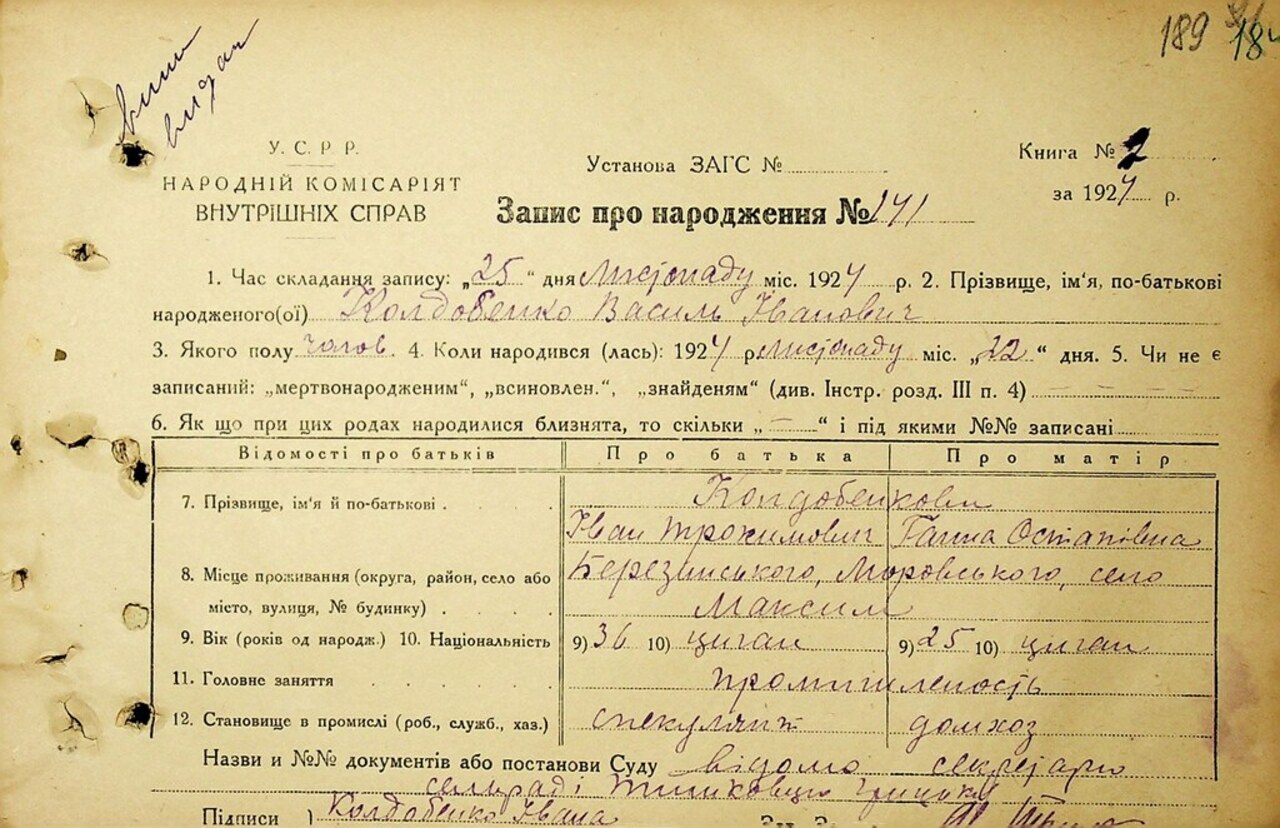 189
184
випис
видан
У. С. Р. Р.
НАРОДНІЙ КОМІСАРІЯТ
ВНУТРІШНІХ СПРАВ
Установа ЗАГС №
Книга № 2
за 1927 р.
Запис про народження № 141
1. Час складання запису: „25“ дня Листопаду міс. 1927 р. 2. Прізвище, ім'я, по-батькові
народженого(ої) Колдобенко Василь Іванович
3. Якого полу чолов. 4. Коли народився (лась): 1927 р. листопаду міс. „22“ дня. 5. Чи не є
записаний: „мертвонародженим“, „всиновлен.“, „знайденям“ (див. Інстр. розд. III п. 4)
6. Як що при цих родах народилися близнята, то скільки „—“ і під якими №№ записані
Відомості про батьків Про батька Про матір
7. Прізвище, ім'я й по-батькові Колдобенкови
Іван Трохимович Ганна Остапівна
8. Місце проживання (округа, район, село або Березинського, Моровського, село
місто, вулиця, № будинку) Максим
9. Вік (років од народж.) 10. Національність 9) 36 10) циган 9) 25 10) циган
11. Головне заняття промишленость
12. Становище в промислі (роб., служб., хаз.) спекулянт домхоз
Назви и №№ документів або постанови Суду відомо секретарю
сельраді
Підписи } Колдобенко Івана